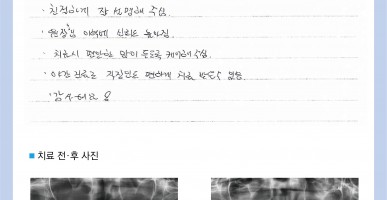 · 친절하게 잘 설명해 주심.
· 원장님 덕분에 신뢰도 높아짐.
· 치료시 편안한 맘이 들도록 케어해주심.
· 야간 진료로 직장인도 편하게 치료 받을 수 있음.
· 감사해요
■ 치료 전·후 사진